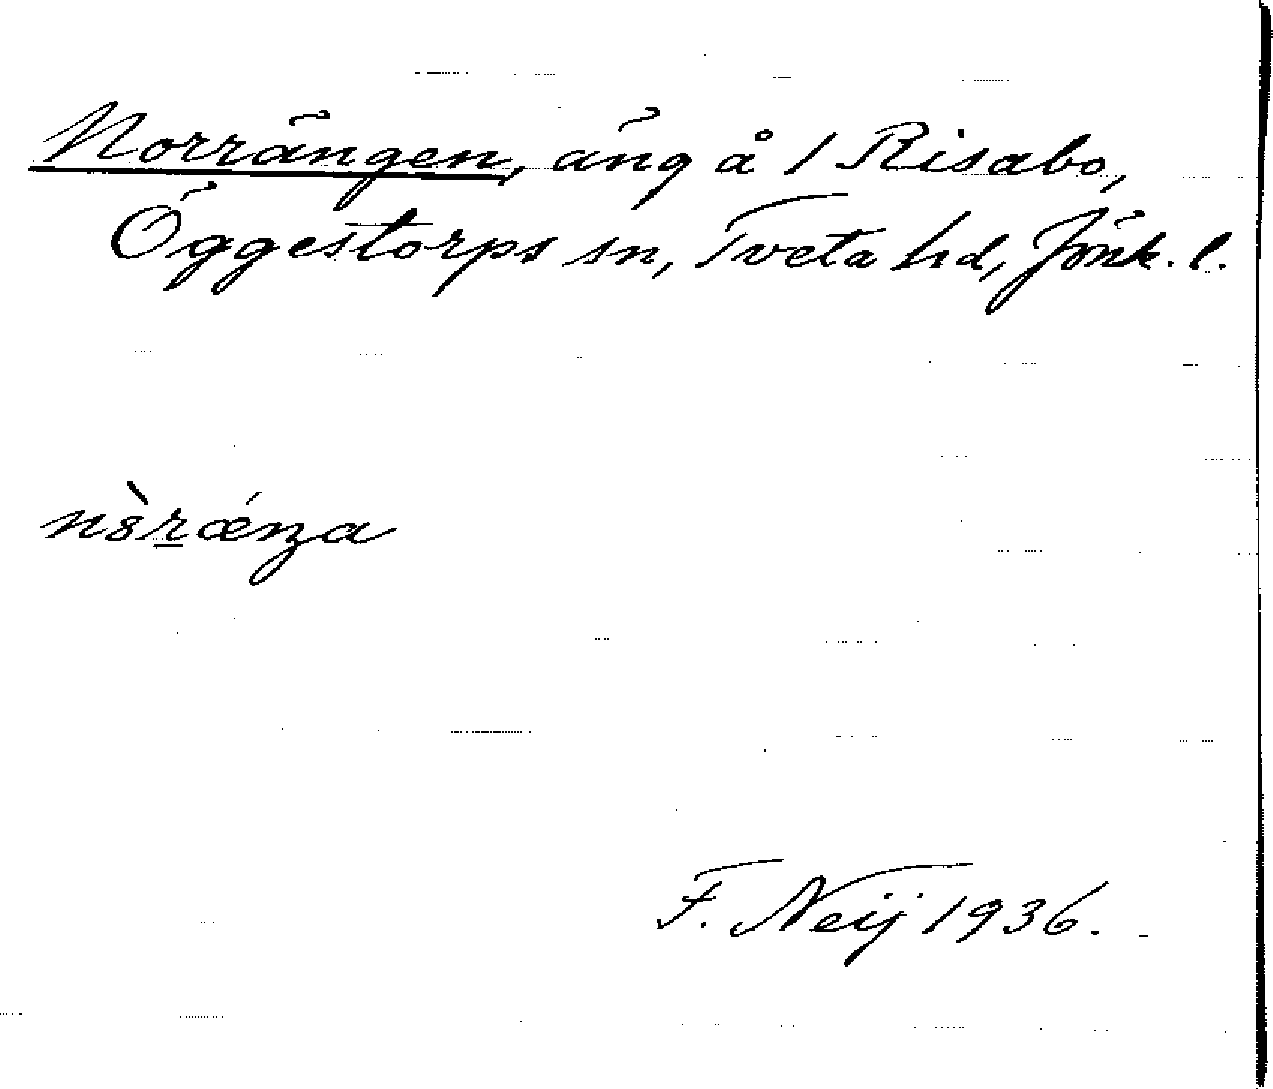 Norrängen, äng å 1 Risabo,
Öggestorps sn, Tveta hd, Jönk. l.
nò̀r̲ǽŋa
F. Neij 1936.